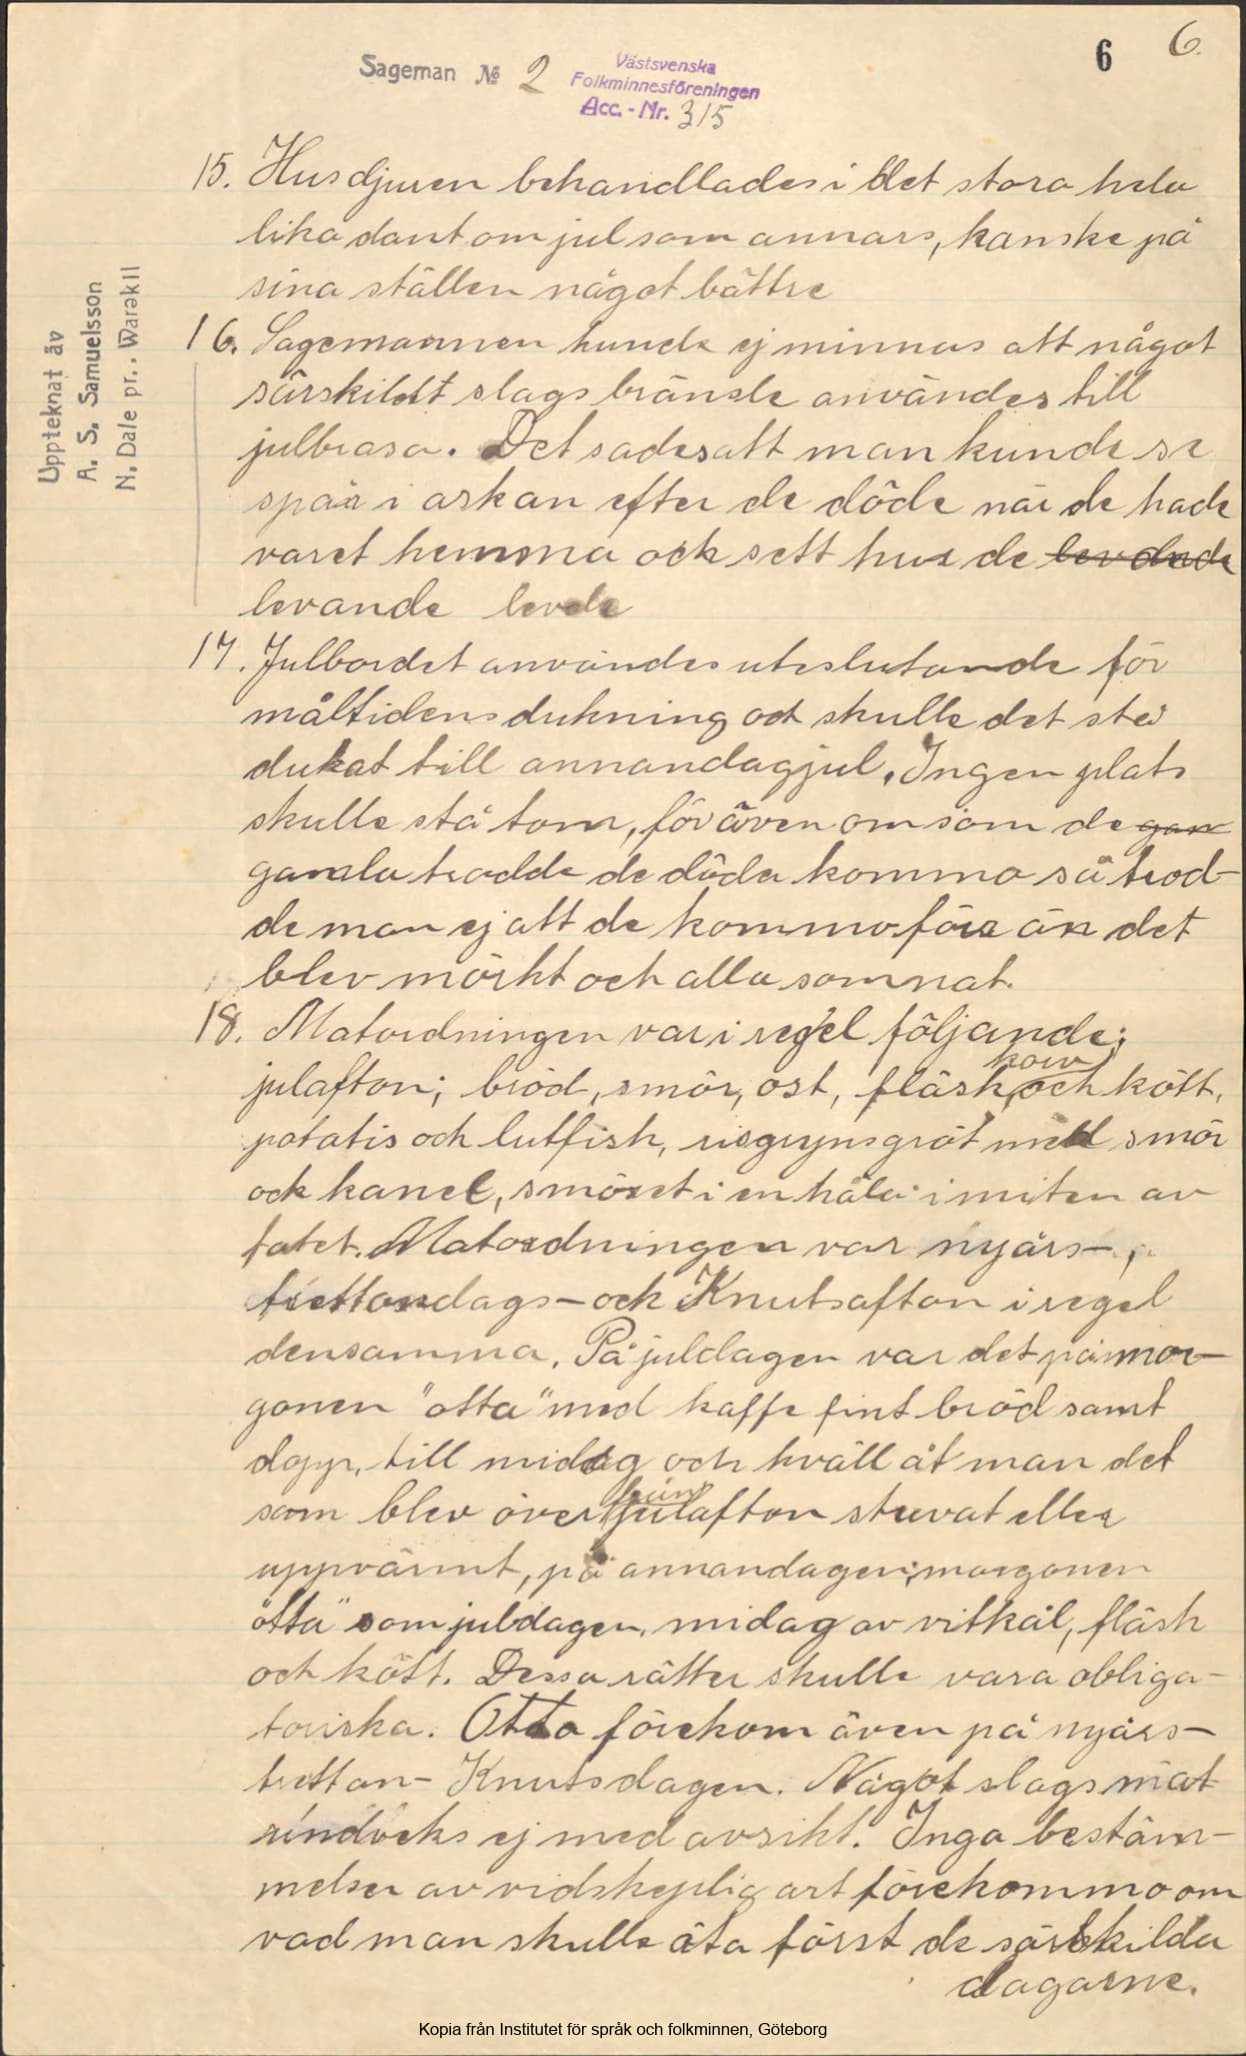 6 6.
Sageman № 2
Västsvenska
Folkminnesföreningen
Acc. - Nr. 315
Uppteknat av
A. S. Samuelsson
N. Dale pr. Warekil
15. Husdjuren behandlades i det stora hela
lika dant om jul som annars, kanske på
sina ställen något bättre
16. Sagemannen kunde ej minnas att något
särskildt slags bränsle användes till
julbrasa. Det sades att man kunde se
spår i askan efter de döde när de hade
varet hemma och sett hur de levdnde
levande levde
17. Julbordet användes uteslutande för
måltidens dukning och skulle det stå
dukat till annandagjul. Ingen plats
skulle stå tom, för även om som de gam
gamla trodde de döda komma så trod-
de man ej att de kommo förr än det
blev mörkt och alla somnat.
18. Matordningen var i regel följande;
julafton; bröd, smör, ost, fläsk, korv och kött,
potatis och lutfisk, risgrynsgröt med smör
och kanel, smöret i en håla i miten av
fatet. Matordningen var nyårs-,
trettondags- och Knutsafton i regel
densamma. På juldagen var det på mor-
gonen "otta" med kaffe fint bröd samt
dopp, till middag och kväll åt man det
som blev över från julafton stuvat eller
uppvärmt, på annandagen; morgonen
ötta" som juldagen, midag av vitkål, fläsk
och kött. Dessa rätter skulle vara obliga-
toriska. Otta förekom även på nyårs-
trettan- Knutsdagen. Något slags mat
undveks ej med avsikt. Inga bestäm-
melser av vidskeplig art förekommo om
vad man skulle äta först de särskilda
dagarne.
Kopia från Institutet för språk och folkminnen, Göteborg